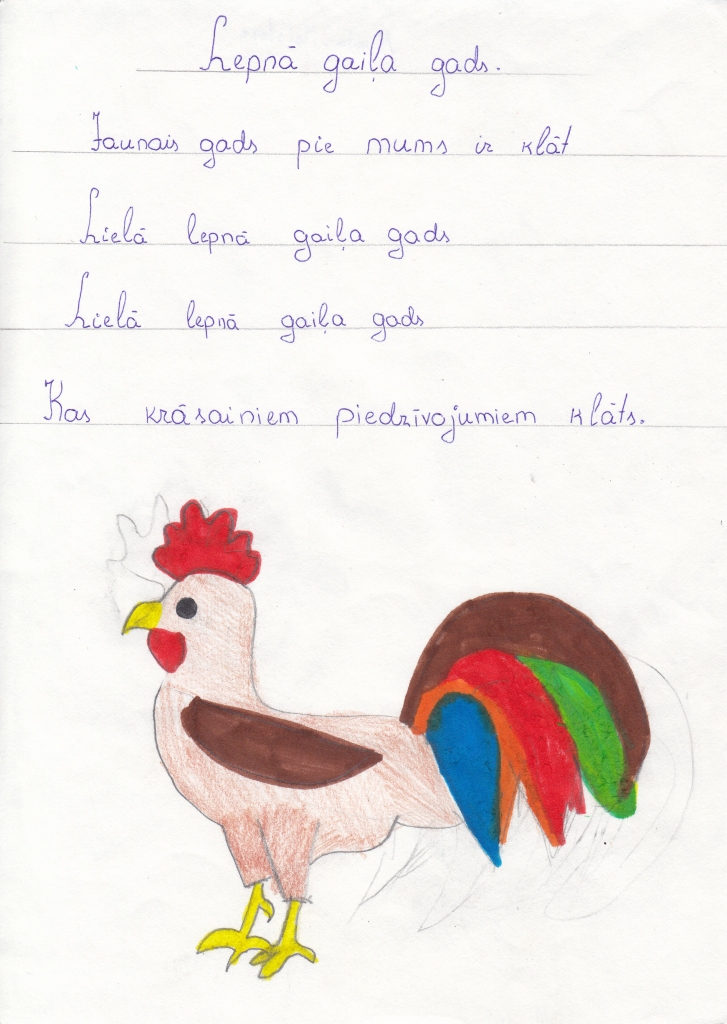 Lepnā gaiļa gads.
Jaunais gads pie mums ir klāt
Lielā lepnā gaiļa gads
Lielā lepnā gaiļa gads
Kas krāsainiem piedzīvojumiem klāts.